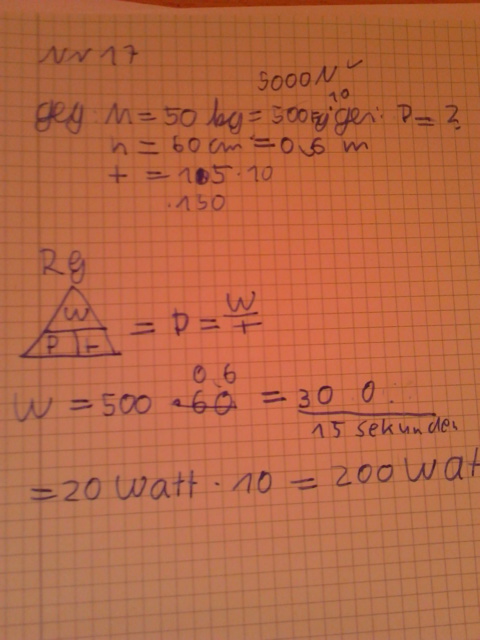 Nr 17
5000N
geg: M = 50 kg = 500 ges: P = ?
h = 60 cm = 0,6 m
t = 15 · 10
· 150
Rg
W
P t = P = W/t
0,6
W = 500 · 60 = 300
15 sekunden
= 20 Watt · 10 = 200 Watt